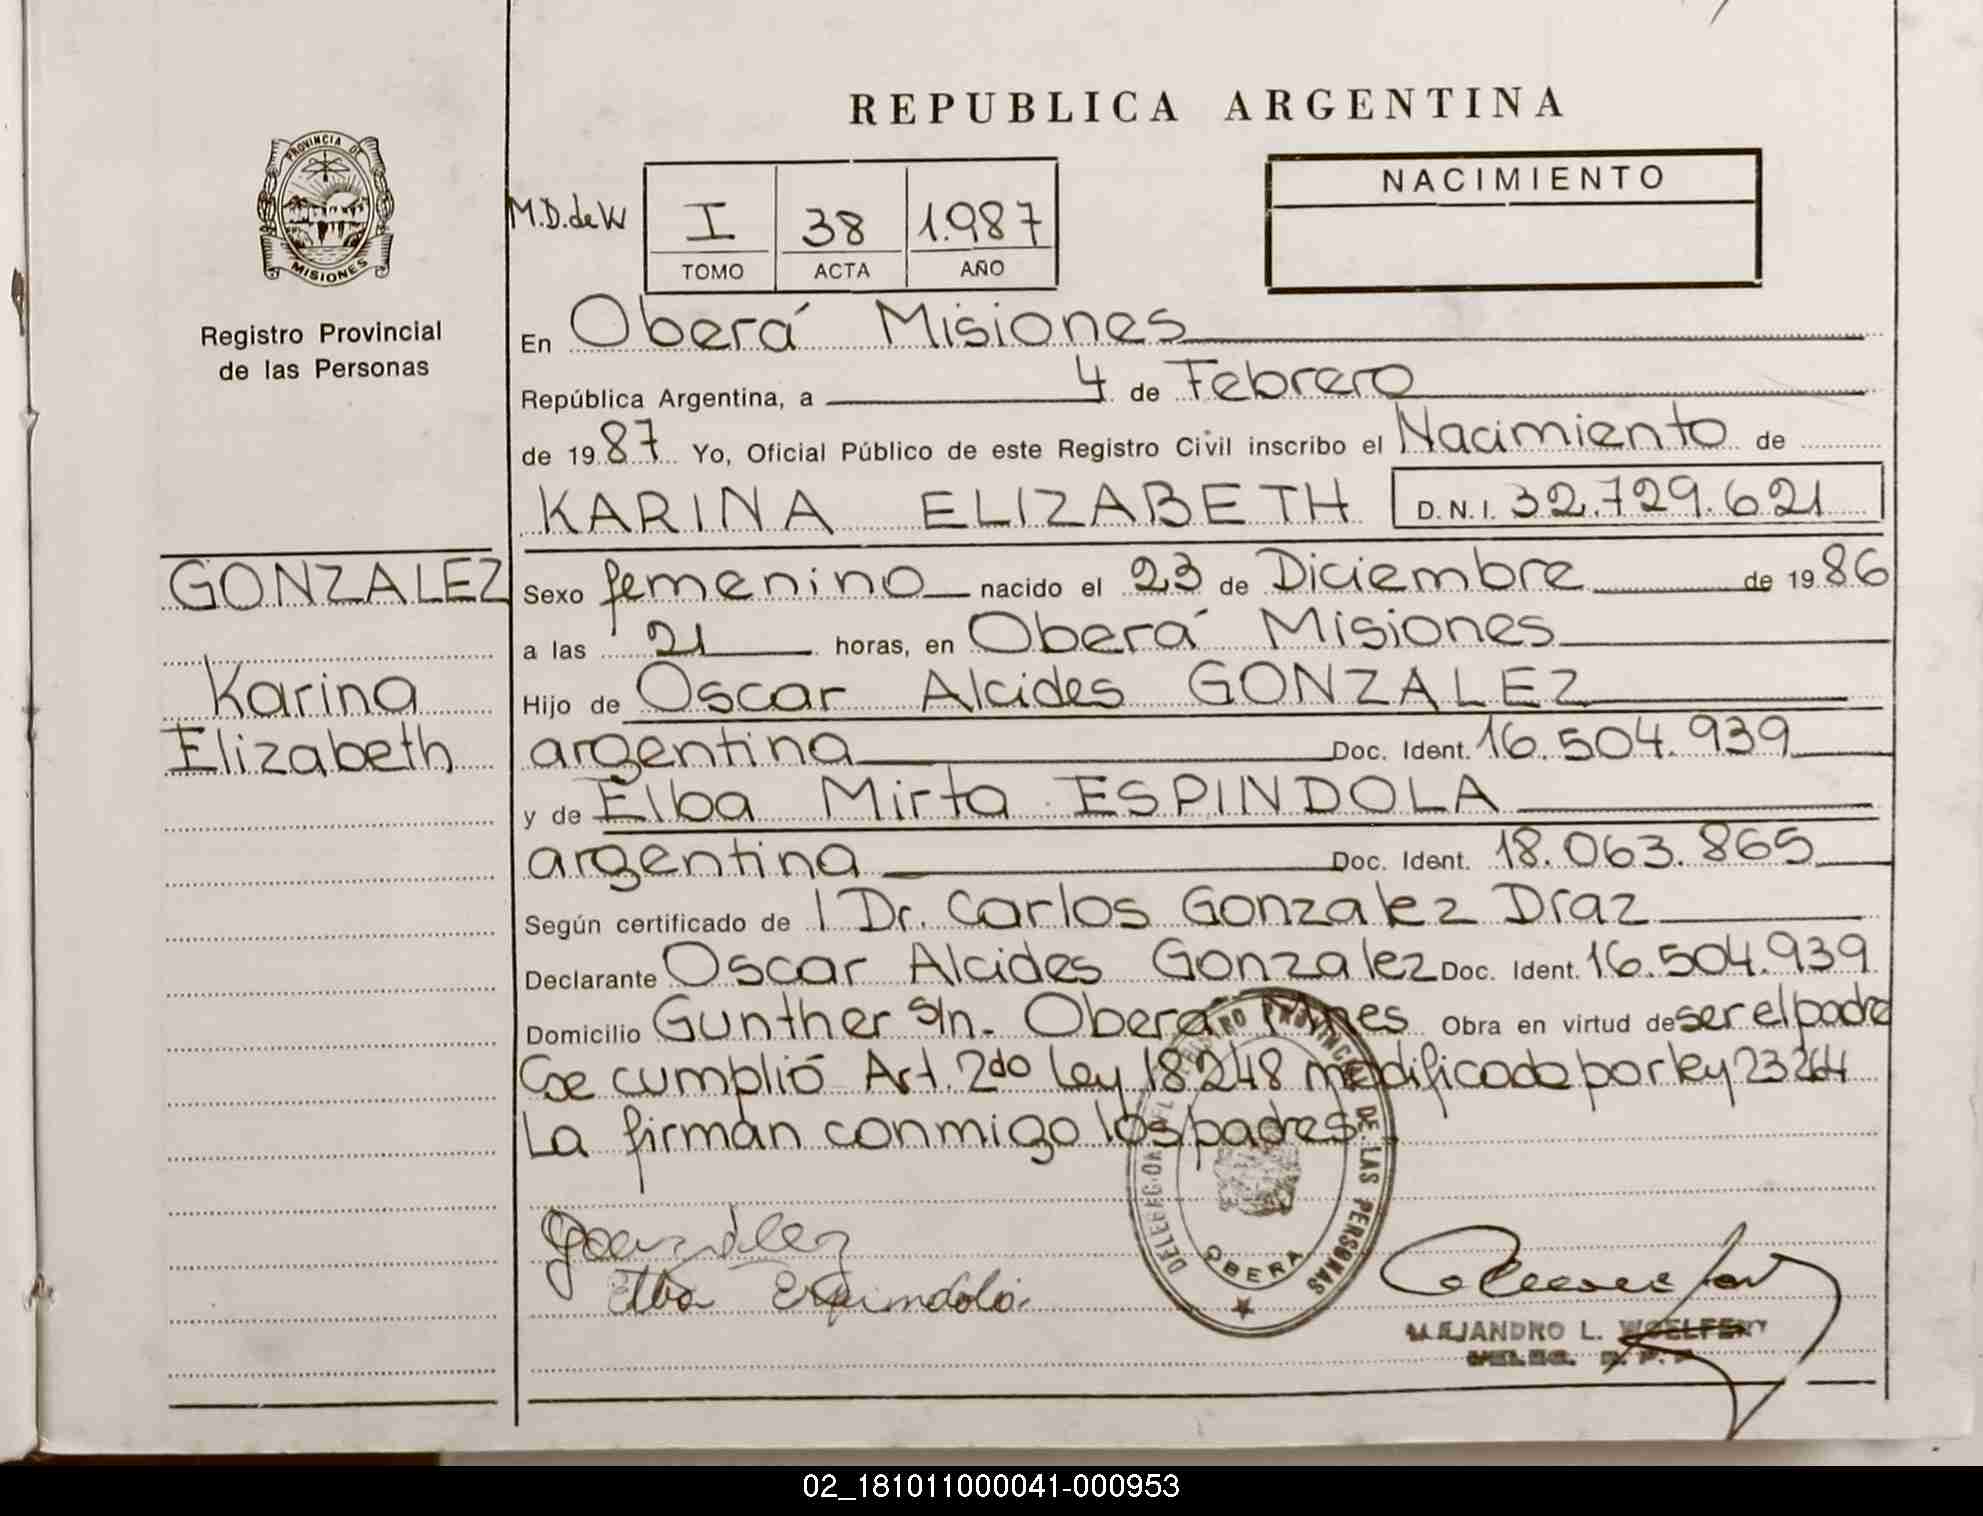 REPUBLICA ARGENTINA
PROVINCIA DE
MISIONES
Registro Provincial
de las Personas
M.D.de W
I 38 1.987
TOMO ACTA AÑO
NACIMIENTO
En Oberá Misiones
República Argentina, a 4 de Febrero
de 19 87 Yo, Oficial Público de este Registro Civil inscribo el Nacimiento de
KARINA ELIZABETH D.N.I. 32.729.621
GONZALEZ
Karina
Elizabeth
Sexo femenino nacido el 23 de Diciembre de 19 86
a las 21 horas, en Oberá Misiones
Hijo de Oscar Alcides GONZALEZ
argentina Doc. Ident. 16.504.939
y de Elba Mirta ESPINDOLA
argentina Doc. Ident. 18.063.865
Según certificado de 1 Dr. Carlos Gonzalez Draz
Declarante Oscar Alcides Gonzalez Doc. Ident. 16.504.939
Domicilio Gunther s/n. Oberá Mnes Obra en virtud de ser el padre
Se cumplió Art. 2do Ley 18248 modificada por ley 23264
La firman conmigo los padres.
DELEGACION DEL REGISTRO PROVINCIAL DE LAS PERSONAS
OBERA
Gonzalez
Elba Espindola
ALEJANDRO L.
02_181011000041-000953